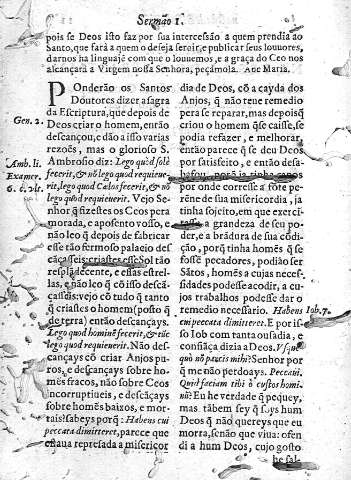 Sermão 1.
pois se Deos isto faz por sua intercessão a quem prendia ao
Santo, que fará a quem o deseja seruir, e publicar seus louuores,
darnos ha linguajẽ com que o louuemos, e a graça do Ceo nos
alcançará a Virgem nossa Senhora, peçamola. Aue Maria.
POnderão os Santos
Doutores dizer a sagra
da Escriptura, que depois de
Gen. 2.
Deos criar o homem, então
descançou, e dão a isso varias
rezoẽs, mas o glorioso S.
Amb. li.
Ambrosio diz: Lego quòd solẽ
Examer.
fecerit, & nõ lego quod requieue-
6. c. vlt.
rit, lego quod Cælos fecerit, & nõ
lego quod requieuerit. Vejo Se-
nhor q̃ fizestes os Ceos pera
morada, e aposento vosso, e
não leo q̃ depois de fabricar
esse tão fermoso palacio des
cãçasseis: criastes esse Sol tão
resplãdecente, e essas estrel-
las, e não leo q̃ cõ isso descã-
çasseis: vejo cõ tudo q̃ tanto
q̃ criastes o homem (posto q̃
de terra) então descançays.
Lego quod hominẽ fecerit, & tũc
lego quod requieuerit. Não des-
cançays cõ criar Anjos puros, e descançays sobre ho-
mẽs fracos, não sobre Ceos
incorruptiueis, e descãçays
sobre homẽs baixos, e mor-
tais? sabeys porq̃: Habens cui
peccata dimitteret, parece que
estaua represada a misericor
dia de Deos, cõ a cayda dos
Anjos, q̃ não teue remedio
pera se reparar, mas depois q̃
criou o homem q̃ se caisse, se
podia refazer, e melhorar,
então parece q̃ se deu Deos
por satisfeito, e então desa-
bafou, porq̃ ja tinha canos
por onde corresse a fõte pe-
rẽne de sua misericordia, ja
tinha sojeito, em que exerci-
tasse a grandeza de seu po-
der, e a brãdura de sua cõdi-
ção, porq̃ tinha homẽs q̃ se
fosse pecadores, podião ser
Sãtos, homẽs a cujas neces-
sidades podesse acodir, a cu-
jos trabalhos podesse dar o
remedio necessario. Habens
Iob. 7.
cui peccata dimitteret. E por is-
so Iob com tanta ousadia, e
confiãça dizia a Deos.
quò nõ parcis mihi? Senhor por
q̃ me não perdoays. Peccaui.
Quid faciam tibi ô custos homi-
nũ? Eu he verdade q̃ pequey,
mas tãbem sey q̃ soys hum
Deus q̃ não quereys que eu
morra, senão que viua: ofen-
di a hum Deos, cujo gosto
he sal-